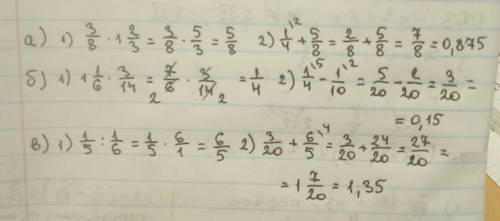 а) 1) 3/8 · 1 2/3 = 3/8 · 5/3 = 5/8 2) 1/4\2 + 5/8 = 2/8 + 5/8 = 7/8 = 0,875
б) 1) 1 1/6 · 3/14 = 7/6 · 3/14 = 1/4 2) 1/4\5 - 1/10\2 = 5/20 - 2/20 = 3/20 =
2 2
= 0,15
в) 1) 1/5 : 1/6 = 1/5 · 6/1 = 6/5 2) 3/20 + 6/5\4 = 3/20 + 24/20 = 27/20 =
= 1 7/20 = 1,35